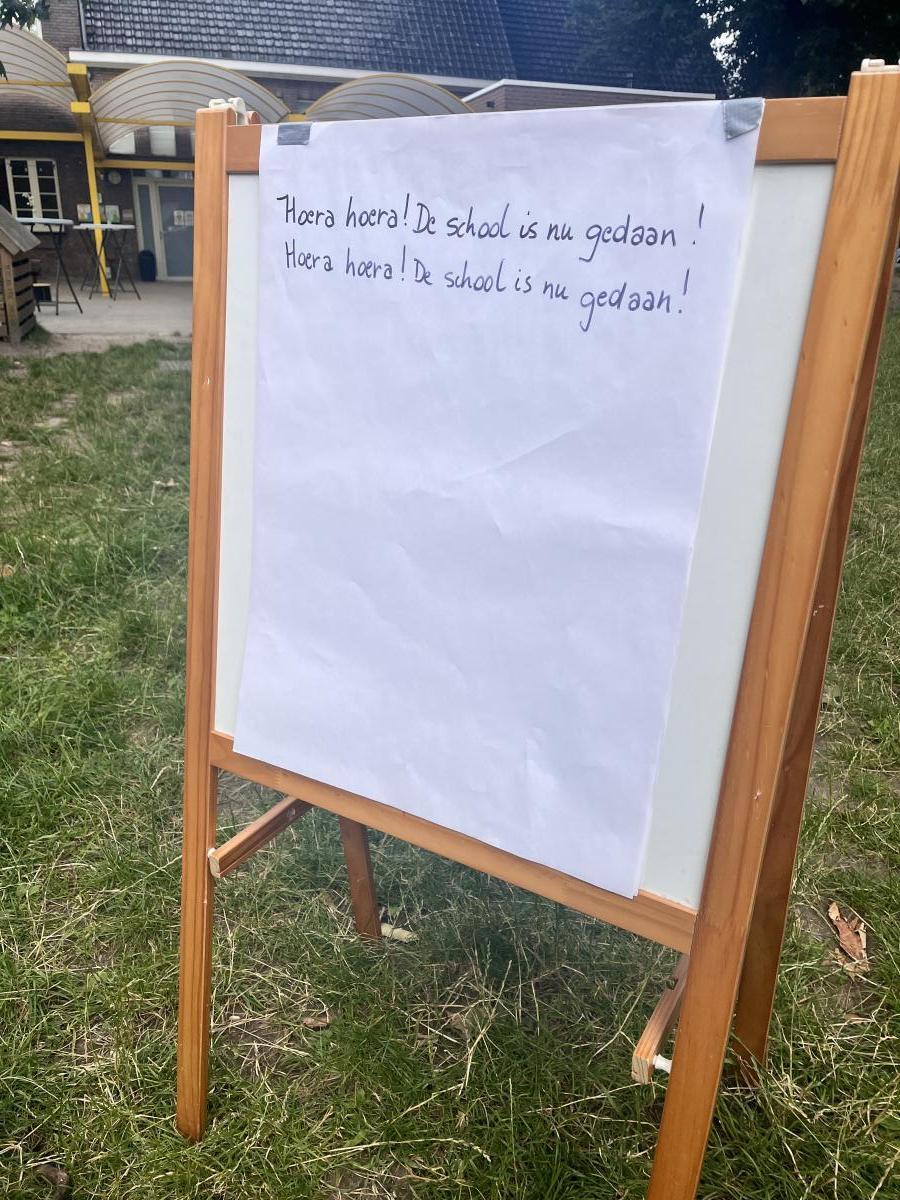 Hoera hoera! De school is nu gedaan !
Hoera hoera! De school is nu gedaan!